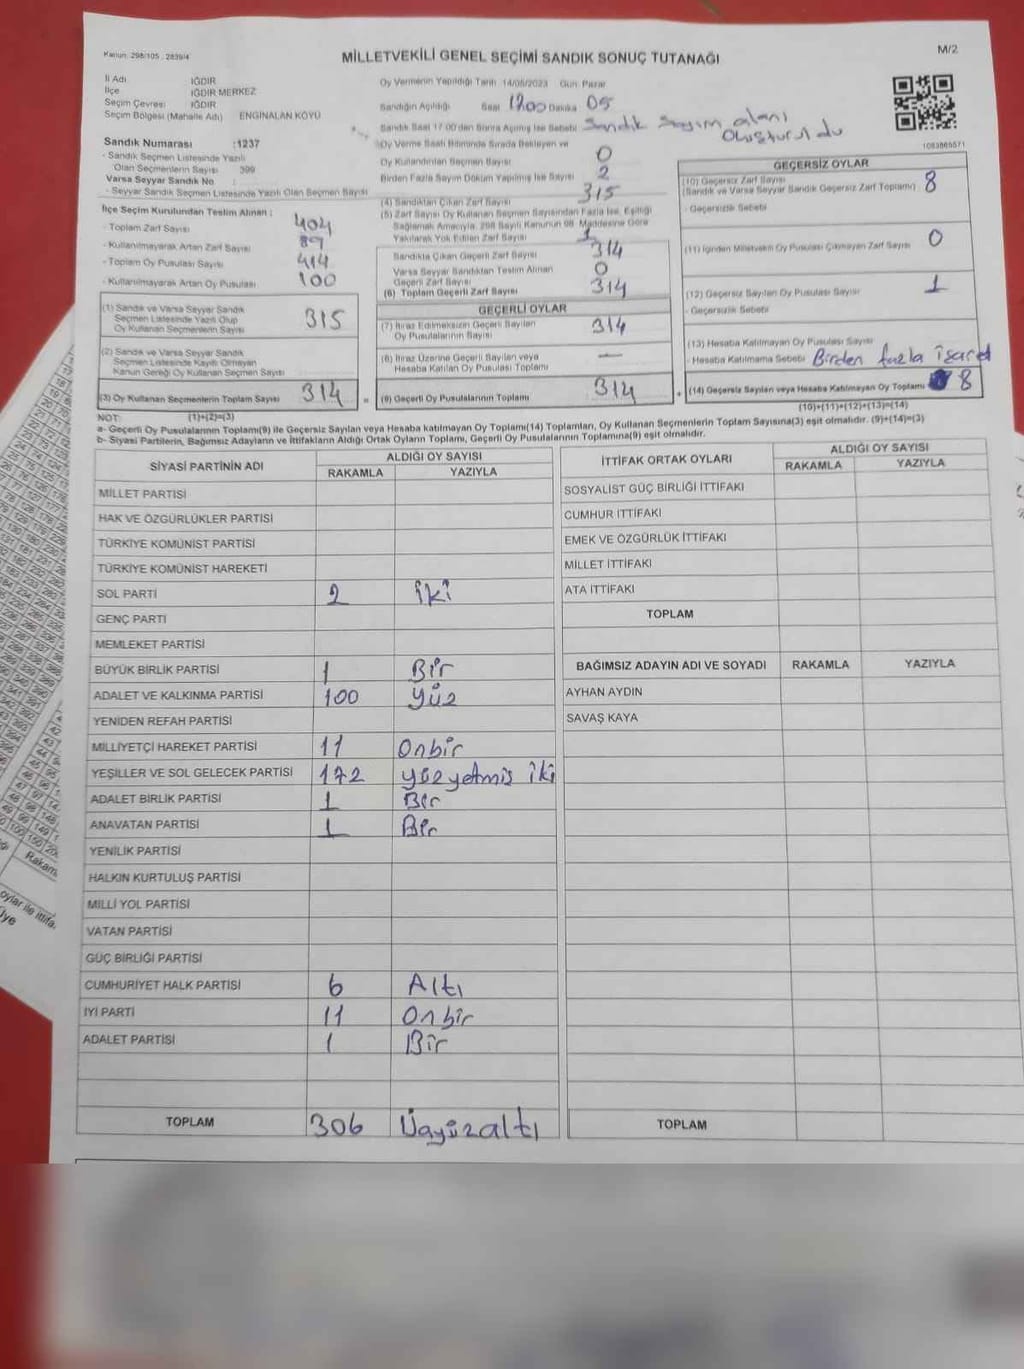 Kanun: 298/105 , 2839/4
M/2
MİLLETVEKİLİ GENEL SEÇİMİ SANDIK SONUÇ TUTANAĞI
İl Adı IĞDIR
İlçe IĞDIR MERKEZ
Seçim Çevresi IĞDIR
Seçim Bölgesi (Mahalle Adı) ENGİNALAN KÖYÜ
Sandık Numarası :1237
- Sandık Seçmen Listesinde Yazılı
Olan Seçmenlerin Sayısı 399
Varsa Seyyar Sandık No :
- Seyyar Sandık Seçmen Listesinde Yazılı Olan Seçmen Sayısı
İlçe Seçim Kurulundan Teslim Alınan :
- Toplam Zarf Sayısı 404
- Kullanılmayarak Artan Zarf Sayısı 89
- Toplam Oy Pusulası Sayısı 414
- Kullanılmayarak Artan Oy Pusulası 100
(1) Sandık ve Varsa Seyyar Sandık
Seçmen Listesinde Yazılı Olup
Oy Kullanan Seçmenlerin Sayısı 315
(2) Sandık ve Varsa Seyyar Sandık
Seçmen Listesinde Kayıtlı Olmayan
Kanun Gereği Oy Kullanan Seçmen Sayısı
(3) Oy Kullanan Seçmenlerin Toplam Sayısı 314 =
(1)+(2)=(3)
Oy Vermenin Yapıldığı Tarih 14/05/2023 Gün Pazar
Sandığın Açıldığı Saat 17.00 Dakika 05
Sandık Saat 17:00'den Sonra Açılmış İse Sebebi Sandık Sayım alanı
Oluşturuldu
Oy Verme Saati Bitiminde Sırada Bekleyen ve
Oy Kullandırılan Seçmen Sayısı 0
Birden Fazla Sayım Döküm Yapılmış İse Sayısı 2
(4) Sandıktan Çıkan Zarf Sayısı 315
(5) Zarf Sayısı Oy Kullanan Seçmen Sayısından Fazla İse, Eşitliği
Sağlamak Amacıyla, 298 Sayılı Kanunun 98. Maddesine Göre
Yakılarak Yok Edilen Zarf Sayısı 1
Sandıkta Çıkan Geçerli Zarf Sayısı 314
Varsa Seyyar Sandıktan Teslim Alınan
Geçerli Zarf Sayısı 0
(6) Toplam Geçerli Zarf Sayısı 314
GEÇERLİ OYLAR
(7) İtiraz Edilmeksizin Geçerli Sayılan
Oy Pusulalarının Sayısı 314
(8) İtiraz Üzerine Geçerli Sayılan veya
Hesaba Katılan Oy Pusulası Toplamı —
(9) Geçerli Oy Pusulalarının Toplamı 314 +
1083865571
GEÇERSİZ OYLAR
(10) Geçersiz Zarf Sayısı
(Sandık ve Varsa Seyyar Sandık Geçersiz Zarf Toplamı) 8
- Geçersizlik Sebebi
(11) İçinden Milletvekili Oy Pusulası Çıkmayan Zarf Sayısı 0
(12) Geçersiz Sayılan Oy Pusulası Sayısı 1
- Geçersizlik Sebebi
(13) Hesaba Katılmayan Oy Pusulası Sayısı
- Hesaba Katılmama Sebebi Birden fazla işaret
(14) Geçersiz Sayılan veya Hesaba Katılmayan Oy Toplamı 8
(10)+(11)+(12)+(13)=(14)
NOT:
a- Geçerli Oy Pusulalarının Toplamı(9) ile Geçersiz Sayılan veya Hesaba katılmayan Oy Toplamı(14) Toplamları, Oy Kullanan Seçmenlerin Toplam Sayısına(3) eşit olmalıdır. (9)+(14)=(3)
b- Siyasi Partilerin, Bağımsız Adayların ve İttifakların Aldığı Ortak Oyların Toplamı, Geçerli Oy Pusulalarının Toplamına(9) eşit olmalıdır.
SİYASİ PARTİNİN ADI
ALDIĞI OY SAYISI
RAKAMLA YAZIYLA
MİLLET PARTİSİ
HAK VE ÖZGÜRLÜKLER PARTİSİ
TÜRKİYE KOMÜNİST PARTİSİ
TÜRKİYE KOMÜNİST HAREKETİ
SOL PARTİ 2 iki
GENÇ PARTİ
MEMLEKET PARTİSİ
BÜYÜK BİRLİK PARTİSİ 1 Bir
ADALET VE KALKINMA PARTİSİ 100 Yüz
YENİDEN REFAH PARTİSİ
MİLLİYETÇİ HAREKET PARTİSİ 11 Onbir
YEŞİLLER VE SOL GELECEK PARTİSİ 172 yüzyetmis iki
ADALET BİRLİK PARTİSİ 1 Bir
ANAVATAN PARTİSİ 1 Bir
YENİLİK PARTİSİ
HALKIN KURTULUŞ PARTİSİ
MİLLİ YOL PARTİSİ
VATAN PARTİSİ
GÜÇ BİRLİĞİ PARTİSİ
CUMHURİYET HALK PARTİSİ 6 Altı
İYİ PARTİ 11 Onbir
ADALET PARTİSİ 1 Bir
TOPLAM 306 Üçyüzaltı
İTTİFAK ORTAK OYLARI
ALDIĞI OY SAYISI
RAKAMLA YAZIYLA
SOSYALİST GÜÇ BİRLİĞİ İTTİFAKI
CUMHUR İTTİFAKI
EMEK VE ÖZGÜRLÜK İTTİFAKI
MİLLET İTTİFAKI
ATA İTTİFAKI
TOPLAM
BAĞIMSIZ ADAYIN ADI VE SOYADI RAKAMLA YAZIYLA
AYHAN AYDIN
SAVAŞ KAYA
TOPLAM